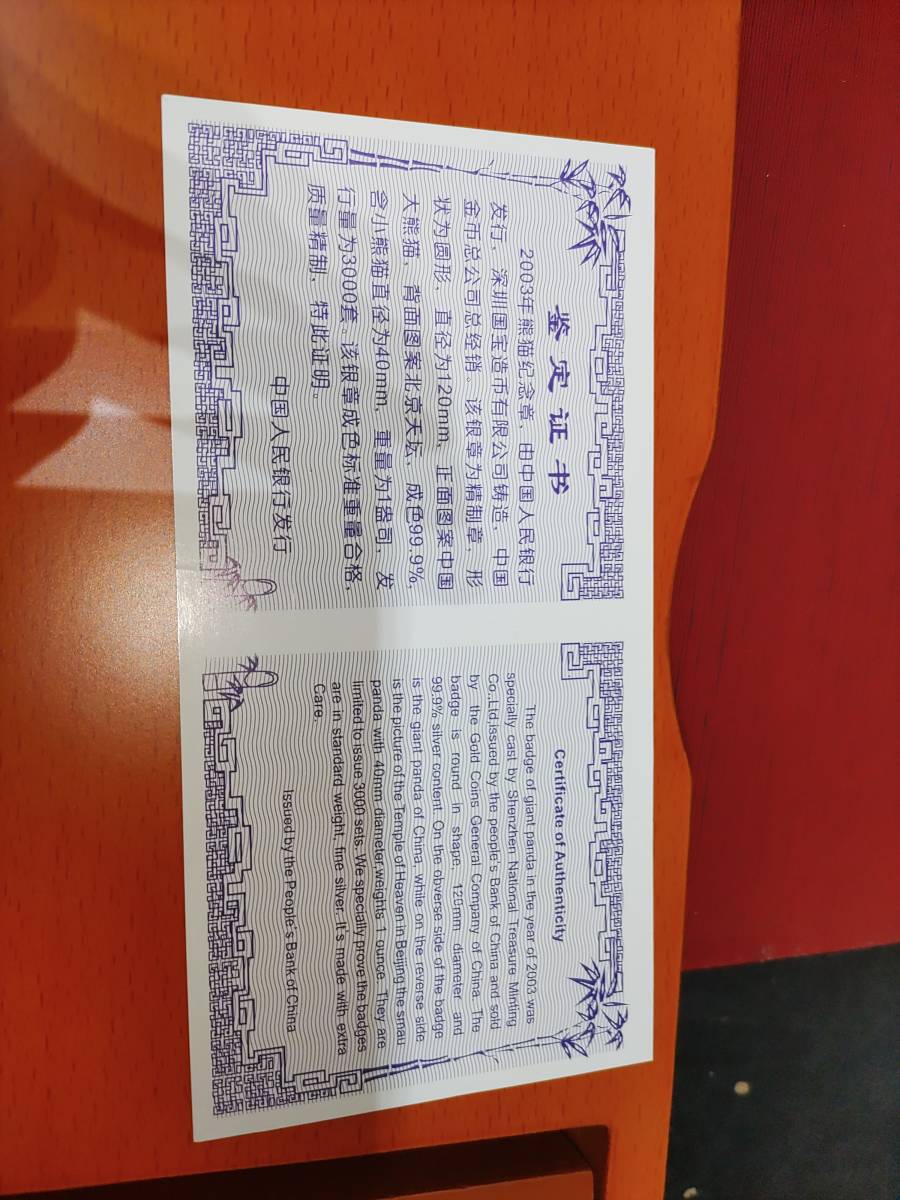 鉴定证书
2003年熊猫纪念章、由中国人民银行
发行、深圳国宝造币有限公司铸造、中国
金币总公司总经销。该银章为精制章，形
状为圆形、直径为120mm、正面图案中国
大熊猫、背面图案北京天坛、成色99.9%，
含小熊猫直径为40mm、重量为1盎司、发
行量为3000套。该银章成色标准重量合格，
质量精制、特此证明。
中国人民银行发行
Certificate of Authenticity
The badge of giant panda in the year of 2003 was
specially cast by Shenzhen National Treasure Minting
Co.,Ltd,issued by the people's Bank of China and sold
by the Gold Coins General Company of China. The
badge is round in shape, 120mm diameter and
99.9% silver content. On the obverse side of the badge
is the giant panda of China, while on the reverse side
is the picture of the Temple of Heaven in Beijing the smau
panda with 40mm diameter,weights 1 ounce. They are
limited to issue 3000 sets. We specially prove the badges
are in standard weight, fine silver. It's made with extra
Care.
Issued by the People's Bank of China